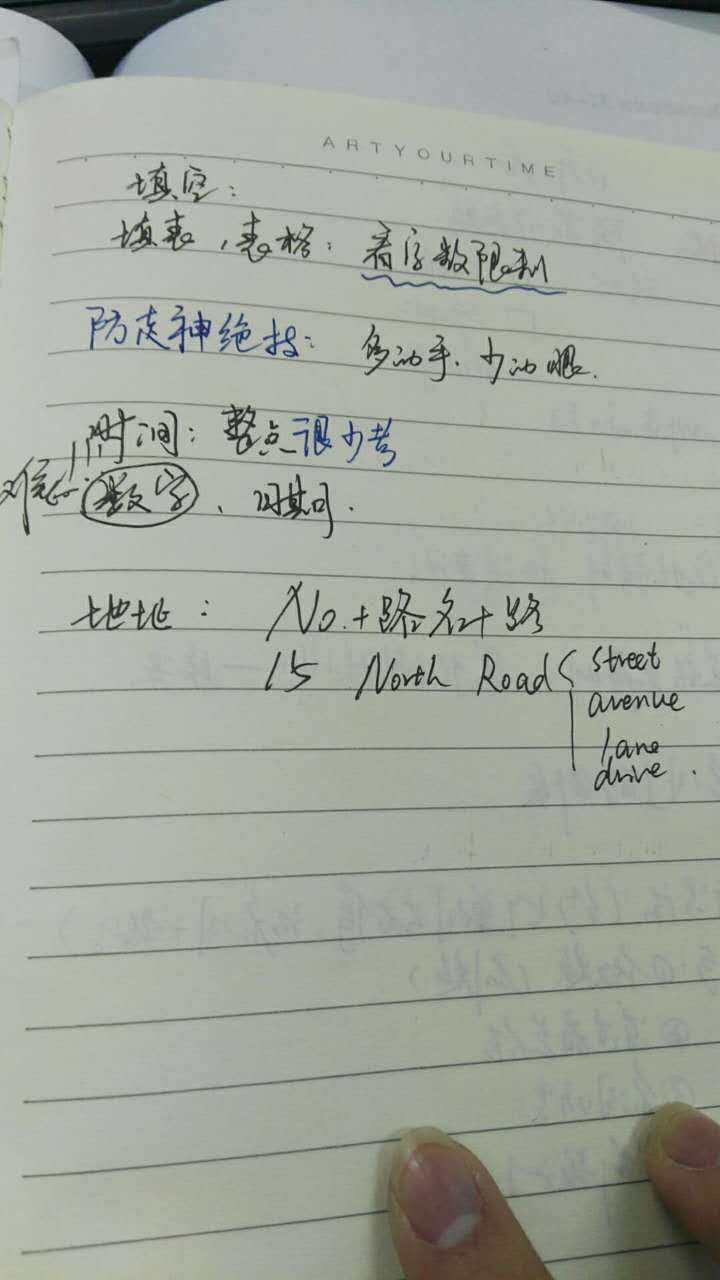 ARTYOURTIME
填空：
填表，表格：看字数限制
防走神绝技：多动手．少动眼．
时间：整点很少考
难点：数字、日期．
地址：No．+路名+路
15 North Road street
avenue
lane
drive．